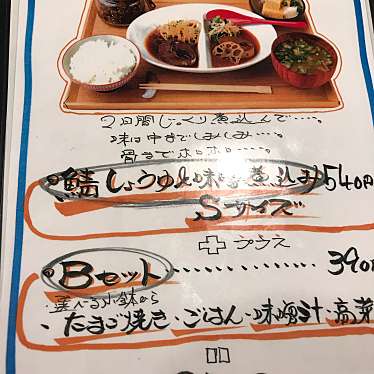 2日間じっくり煮込んで‥‥。
味は中までしみしみ‥‥。
骨までホロホロ‥‥。
鯖しょうゆ&味噌煮込み 540円
Sサイズ
＋プラス
Bセット‥‥‥‥‥‥390円
選べる小鉢から
・たまご焼き・ごはん・味噌汁・高菜